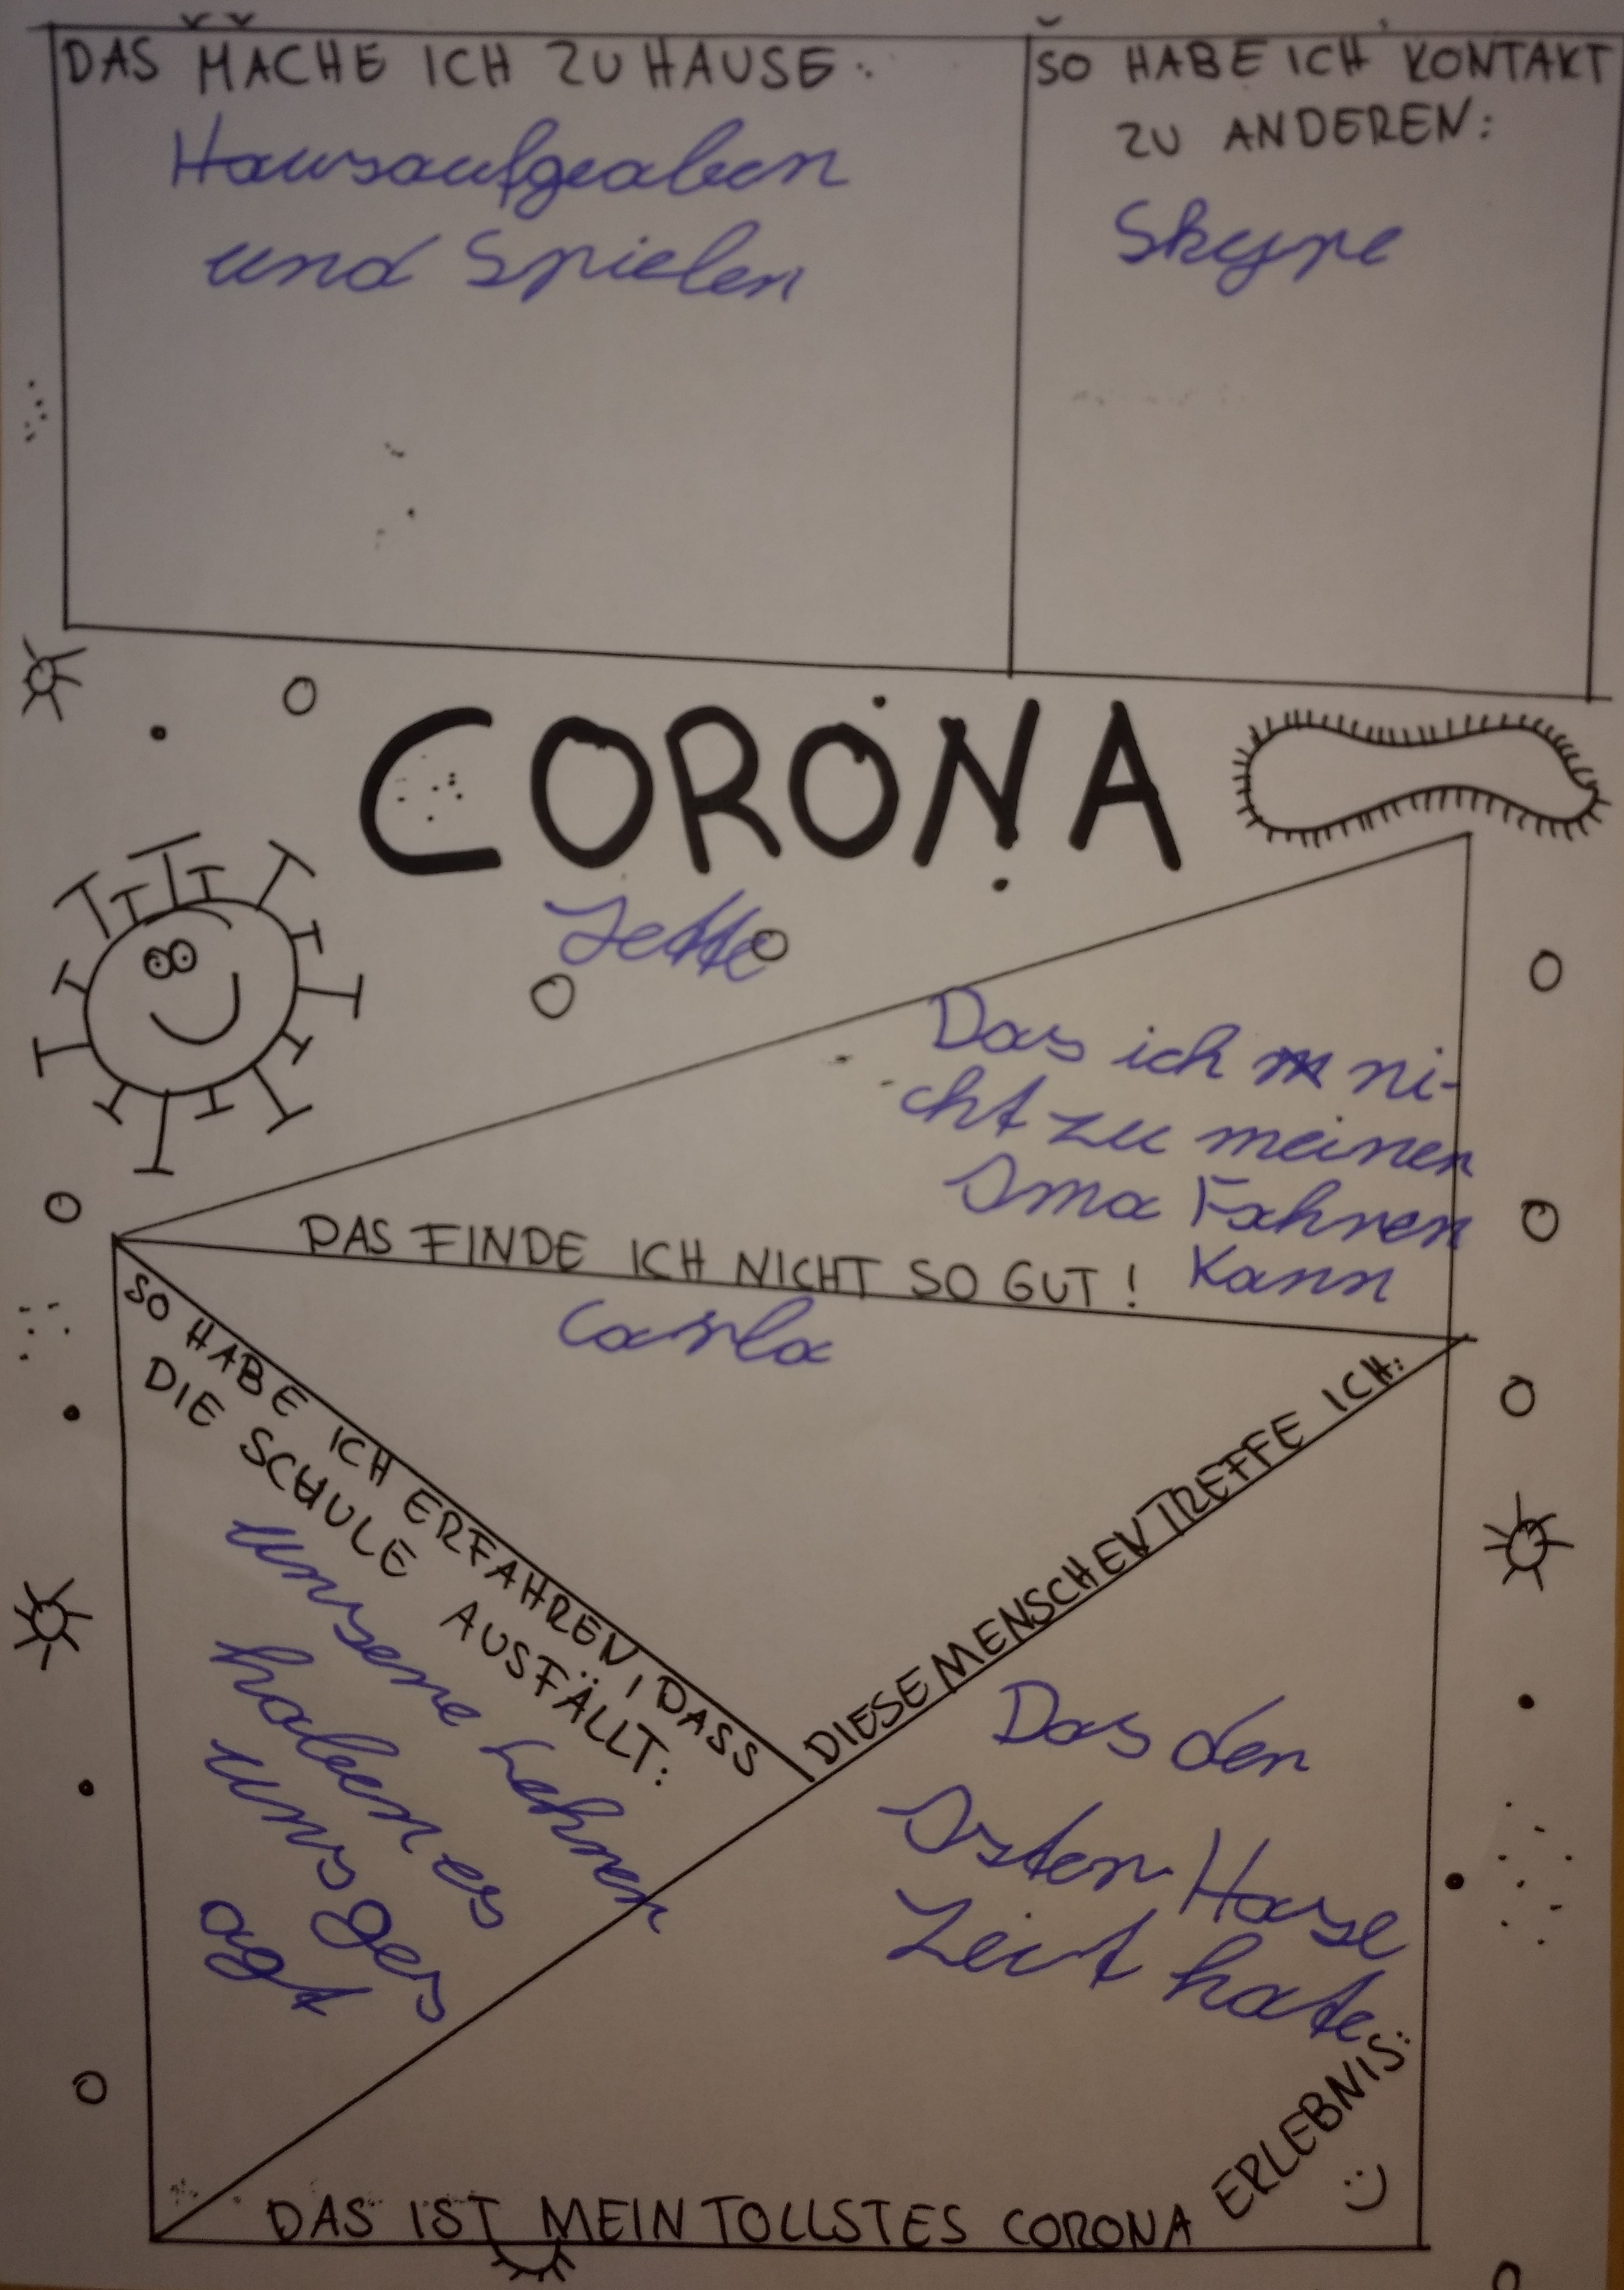 DAS MACHE ICH ZU HAUSE:
Hausaufgeaben
und Spielen
SO HABE ICH KONTAKT
ZU ANDEREN:
Skype
CORONA
Jette
Das ich ni-
cht zu meinen
Oma Fahren
Kann
DAS FINDE ICH NICHT SO GUT!
Carla
DIESE MENSCHEN TREFFE ICH:
SO HABE ICH ERFAHREN, DASS
DIE SCHULE AUSFÄLLT:
unsere Lehrer
haben es
uns ges
agt
Das der
Oster Hase
Zeit hate
DAS IST MEIN TOLLSTES CORONA ERLEBNIS: